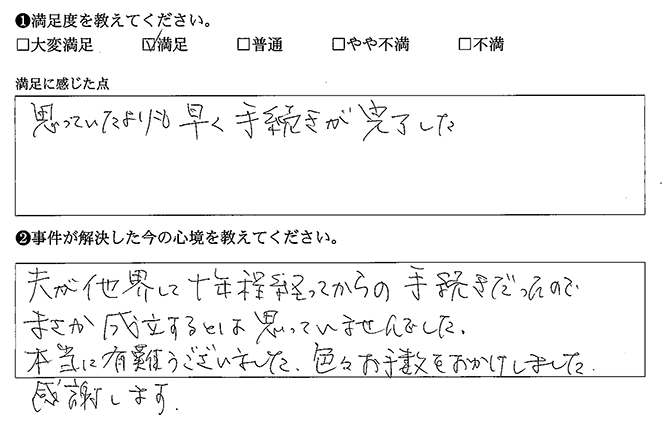 ❶満足度を教えてください。
□大変満足 ☑満足 □普通 □やや不満 □不満
満足に感じた点
思っていたよりも早く手続きが完了した
❷事件が解決した今の心境を教えてください。
夫が他界して十年程経ってからの手続きだったので
まさか成立するとは思っていませんでした。
本当に有難うございました。色々お手数をおかけしました。
感謝します。